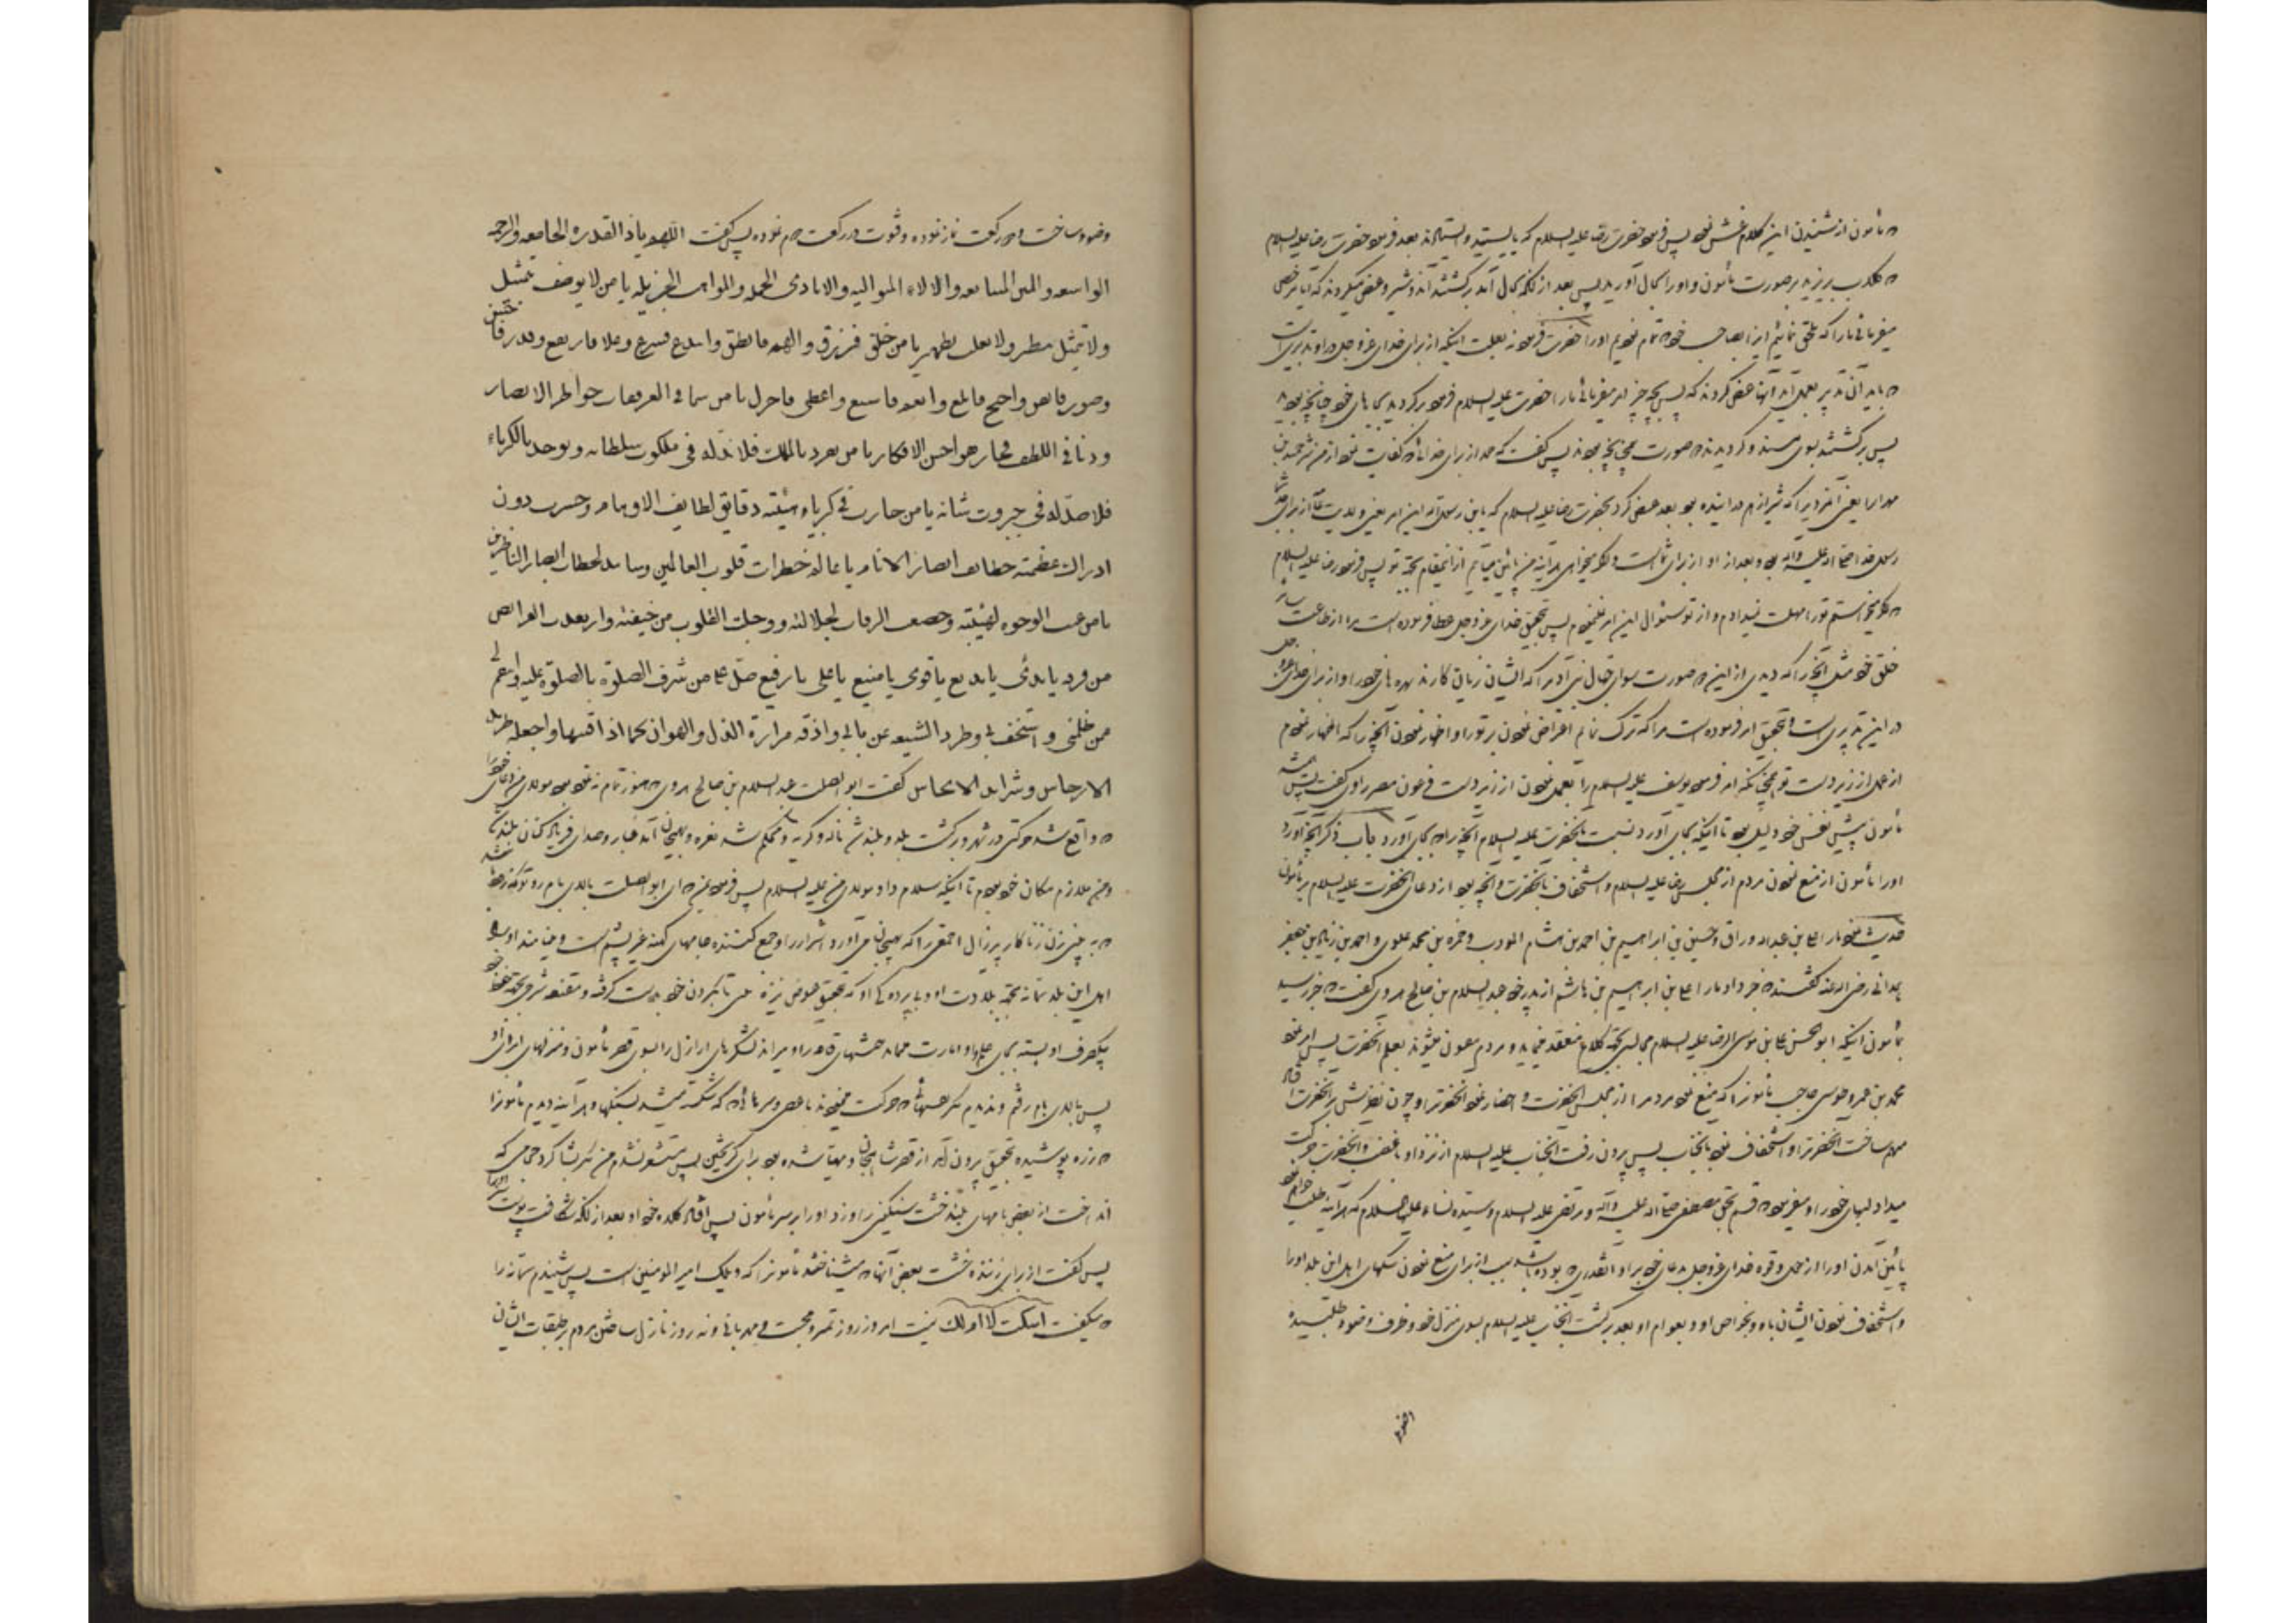 مأمون از شنیدن این کلام غش نمود پس فرمود حضرت رضا علیه السلام که بایستید و ایستادند بعد فرمود حضرت رضا علیه السلام
که گلاب بریزید بر صورت مأمون و او را بحال آورید پس بعد از آنکه بحال آمد برگشتند آن دو شیر و عرض میکردند که آیا مرخص
میفرمائی ما را که ملحق نمائیم او را بصاحب خود که تمام نمودیم او را حضرت فرمود نه بعلت اینکه از برای خدای عز و جل در او تدبیری است
که باید آن تدبیر بعمل آید آنها عرض کردند که پس بچه چیز امر میفرمائی ما را حضرت علیه السلام فرمود برگردید بجاهای خود چنانچه بودید
پس برگشتند بسوی مسند و گردیدند دو صورت همچنانچه بودند پس گفت که حمد از برای خدائی که کفایت نمود از من شر حمید بن
مهران یعنی آنمردیرا که شیران او را درانیده بود بعد عرض کرد بحضرت رضا علیه السلام که یابن رسول الله این امر یعنی ولایت از برای جد شما
رسول خدا صلی الله علیه وآله بود و بعد از او از برای شما است و اگر میخواهی هر آینه من پائین میآیم از این مقام بجهة تو پس فرمود رضا علیه السلام
که اگر میخواستم تو را مهلت نمیدادم و از تو سئوال این امر نمینمودم پس بتحقیق خدای عز و جل عطا فرموده است مرا از اطاعت سایر
خلق خود مثل آنچه را که دیدی از این دو صورت سوای جهال بنی آدم را که ایشان زیان کارند بهره های خود را و از برای خدای عز و جل
در این تدبیری است و بتحقیق امر فرموده است مرا که ترک نمایم اعتراض نمودن بر تو را و اظهار نمودن آنچه را که اظهار نمودم
از عمل از زیر دست تو همچنانکه امر فرمود یوسف علیه السلام را بعمل نمودن از زیر دست فرعون مصر راوی گفت پس همیشه
مأمون پیش نفس خود ذلیل بود تا اینکه بجای آورد نسبت بآنحضرت علیه السلام آنچه را که بجای آورد باب ذکر آنچه آورد
او را مأمون از منع نمودن مردم از مجلس رضا علیه السلام و استخفاف بآنحضرت و آنچه بود از دعای آنحضرت علیه السلام بر مأمون
حدیث نمود ما را علی بن عبدالله وراق و حسین بن ابراهیم بن احمد بن هشام المودب و حمزه بن محمد علوی و احمد بن زیاد بن جعفر
همدانی رضی الله عنه گفتند که خبر داد ما را علی بن ابراهیم بن هاشم از پدر خود عبدالسلام بن صالح هروی گفت که خبر رسید
بمأمون اینکه ابو الحسن علی بن موسی الرضا علیه السلام مجالس بجهة کلام منعقد مینماید و مردم مفتون میشوند بعلم آنحضرت پس امر نمود
محمد بن عمرو طوسی حاجب مأمون را که منع نمود مردم را از مجلس آنحضرت و احضار نمود آنحضرترا و چون نظرش بر آنحضرت افتاد
ساخت آنحضرترا و استخفاف نمود بآنجناب پس بیرون رفت آنجناب علیه السلام از نزد او با غضب و آنحضرت حرکت
میداد لبهای خود را و میفرمود که قسم بحق مصطفی صلی الله علیه وآله و مرتضی علیه السلام و سیده نساء علیها السلام که هر آینه طلب خواهم نمود
پائین آمدن او را از حول و قوه خدای عز و جل بدعای خود بر او آنقدری که بوده باشد سبب از برای منع نمودن سگهای اهل این بلد او را
و استخفاف نمودن ایشان باو و بخواص او و بعوام او بعد برگشت آنجناب علیه السلام بسوی منزل خود و ظرف وضو طلبیده
وضو ساخت و دو رکعت نماز نموده و قنوت در رکعت دوم نموده پس گفت اللهم یا ذا القدرة الجامعه والرحمه
الواسعه والمنن المتتابعه والالاء المتوالیه والایادی الجمیله والمواهب الجزیله یا من لا یوصف بتمثیل
ولا یمثل بنظیر ولا یغلب بظهیر یا من خلق فرزق والهم فانطق وابتدع فشرع وعلا فارتفع وقدر فاحسن
وصور فاتقن واحتج فابلغ وانعم فاسبغ واعطی فاجزل یا من سما فی العز ففات خواطر الابصار
ودنا فی اللطف فجاز هواجس الافکار یا من تفرد بالملک فلا ند له فی ملکوت سلطانه وتوحد بالکبریاء
فلا ضد له فی جبروت شانه یا من حارت فی کبریاء هیئته دقایق لطایف الاوهام وحسرت دون
ادراک عظمته خطایف ابصار الانام یا عالم خطرات قلوب العالمین وشاهد لحظات ابصار الناظرین
یا من عنت الوجوه لهیبته وخضعت الرقاب لجلالته ووجلت القلوب من خیفته وارتعدت الفرائص
من فرقه یا بدئ یا بدیع یا قوی یا منیع یا علی یا رفیع صل علی من شرفت الصلوة بالصلوة علیه وانتقم لی
ممن ظلمنی واستخف بی وطرد الشیعه عن بابی واذقه مرارة الذل والهوان کما اذاقنیها واجعله طرید
الارجاس وشرید الانجاس گفت ابو الصلت عبدالسلام بن صالح هروی که هنوز تمام ننموده بود مولای من دعای خود را
که واقع شد حرکتی در شهر و برگشت بلد و بلند شد ناله و گریه و محکم شد نعره و بهیجان آمد غبار و صدای فریاد کنان بلند شد
و من ملازم مکان خود بودم تا اینکه سلام داد مولای من علیه السلام پس فرمود بمن که ای ابو الصلت بالای بام رو
که به بینی زن زناکار پیر زال احمق را که بهیجان میآورد اشرار را و جمع کننده جامهای کهنه غیر پشم است و مینامند او را
اهل این بلد سمانه بجهة بلادت او و بی پردگی او که بتحقیق عوض نیزه علی تا بگردن خود بدست گرفته و مقنعه سرخی بجهة خود
یکطرف او بسته بجای علم و او امارت
پس بالای بام رفتم و ندیدم مگر که حرکت مینمودند بعصی و سرهائی که شکسته میشد بسنگها و هر آینه دیدم مأمون را
که زره پوشیده بتحقیق بیرون آمد از قصر شاهجان و مهیا شده بود برای گریختن پس مستشعر نشدم من مگر بشاگرد حجامی که
انداخت از بعض بامهای بلند خشت سنگینی را و زد او را بر سر مأمون پس افتاد کلاه خود او بعد از آنکه شکافت پوست سر او را
پس گفت از برای زننده خشت بعض آنها که میشناختند مأمون را که ویلک امیر المومنین است پس شنیدم سمانه را
که میگفت اسکت لا ام لک نیست امروز روز تمیز و محبت و مهربانی و نه روز نازل ساختن مردم بر طبقات ایشان